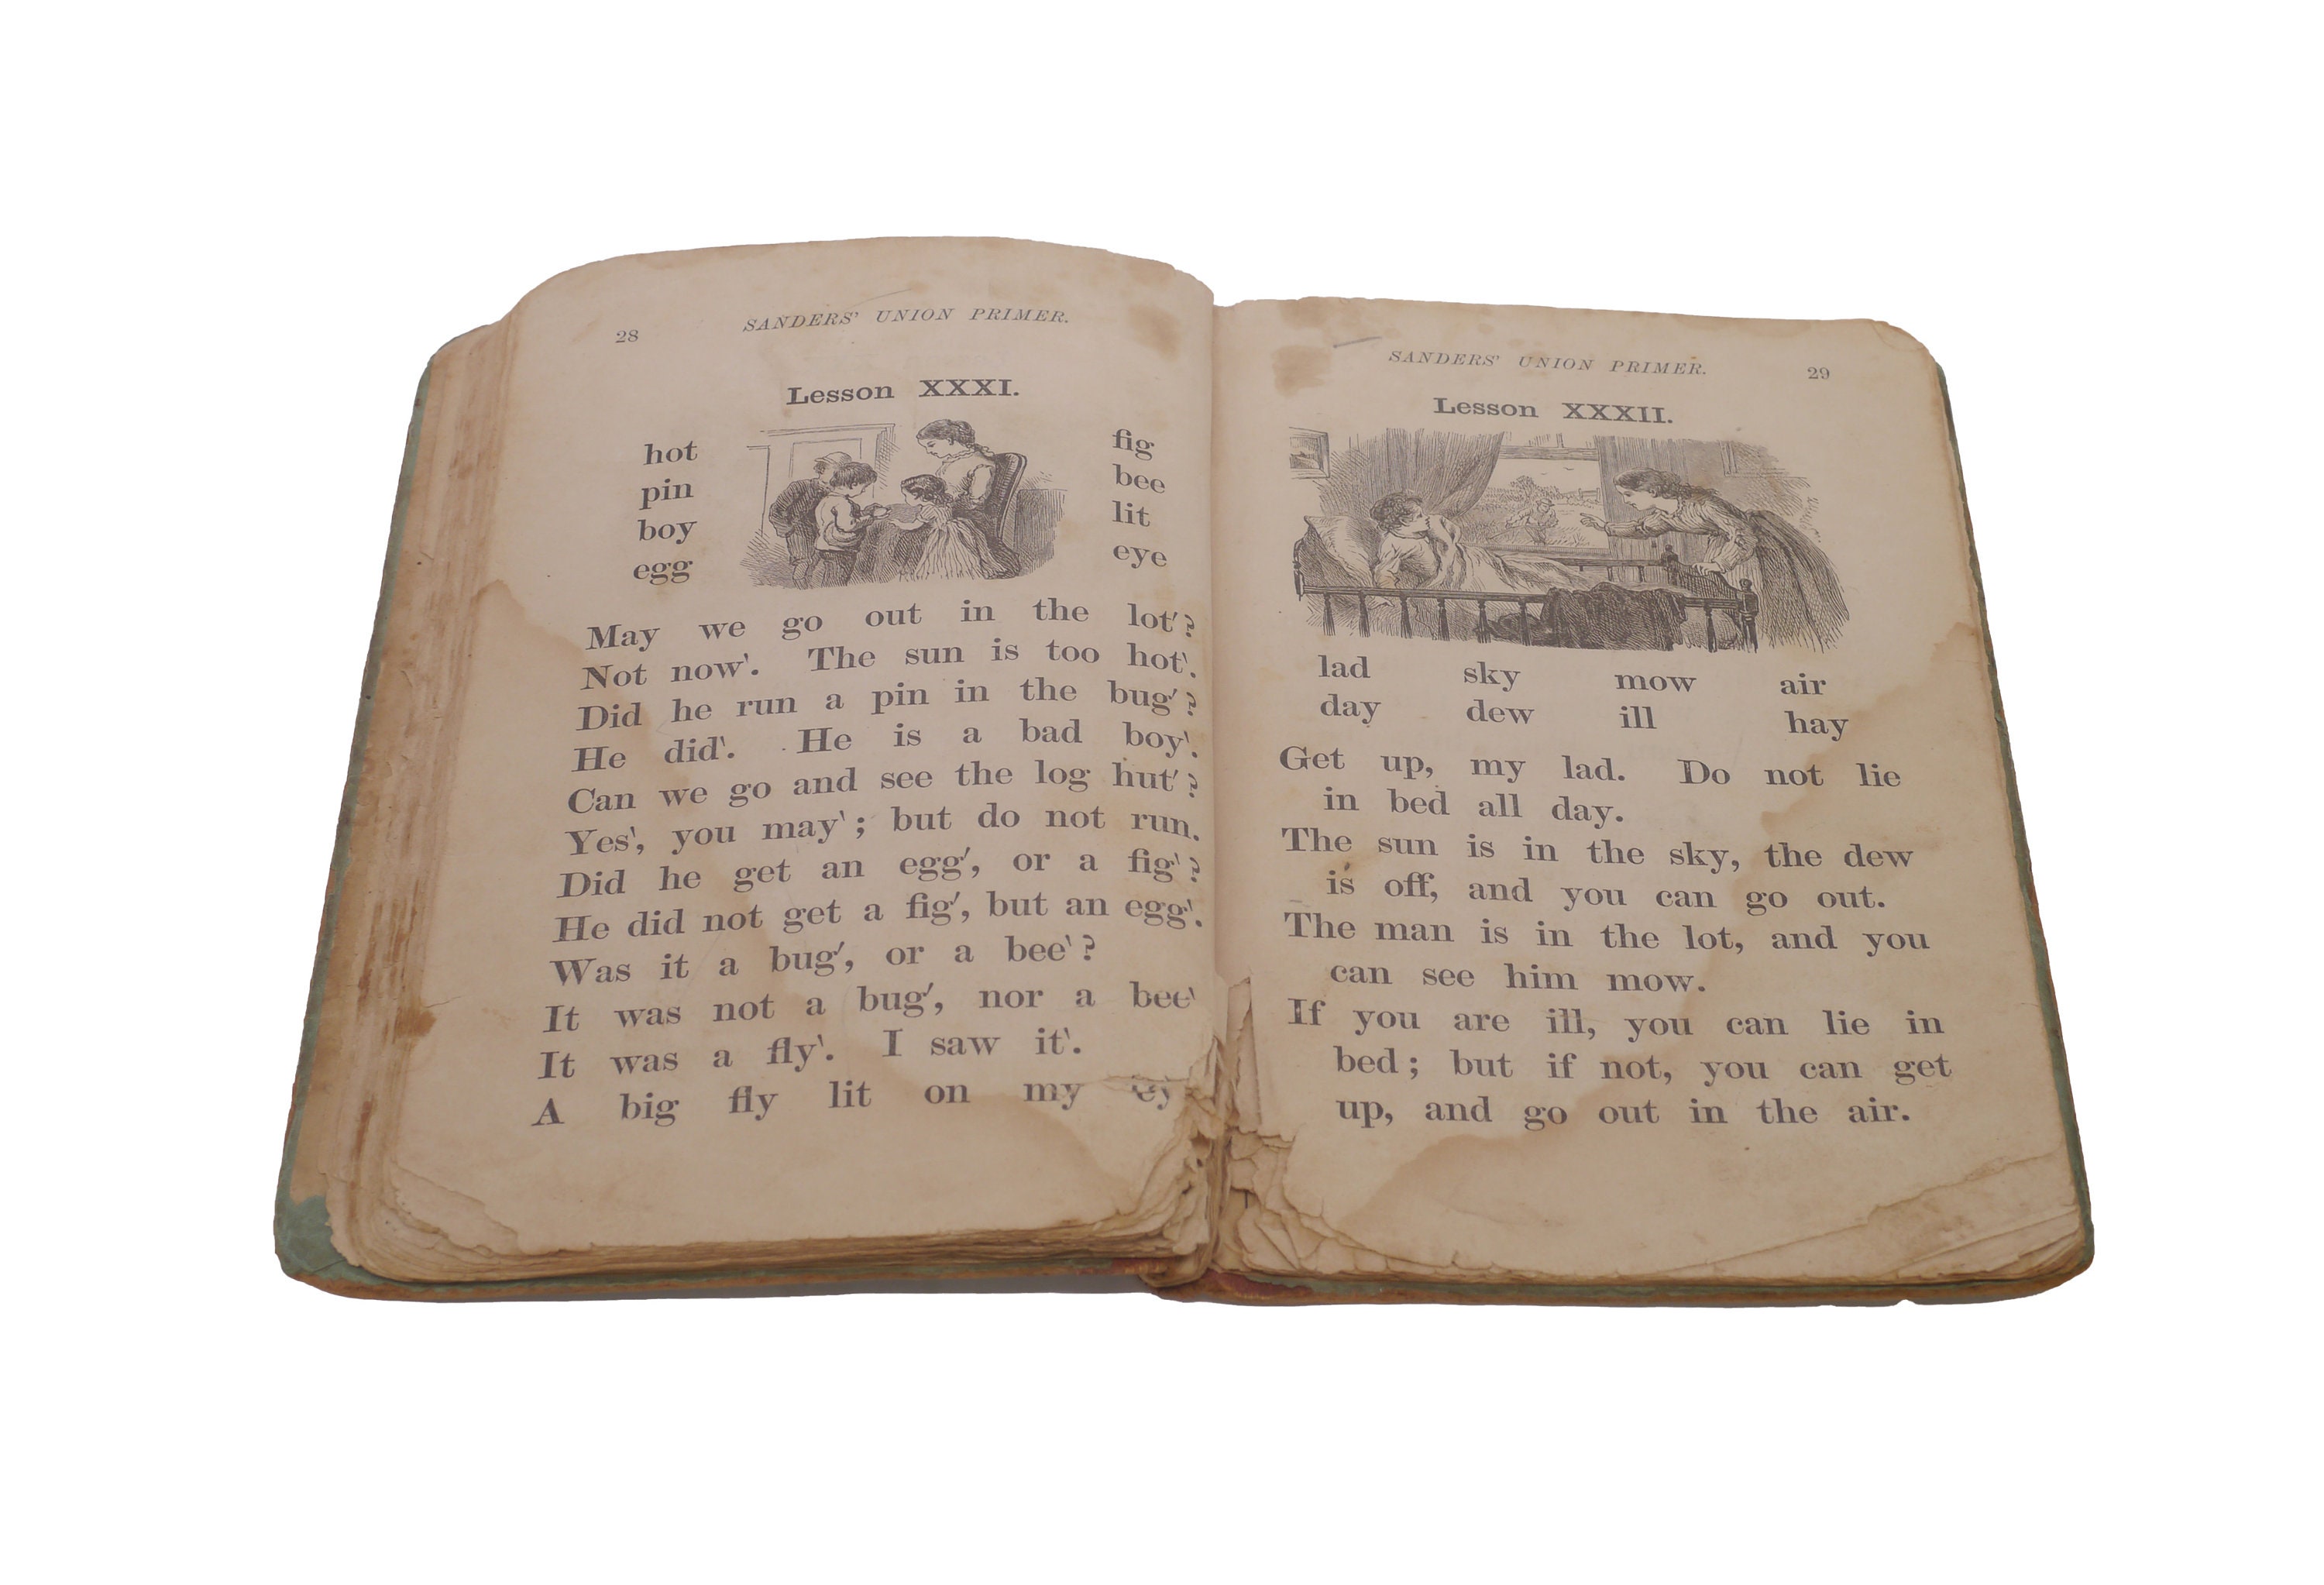 28 SANDERS' UNION PRIMER.
Lesson XXXI.
hot fig
pin bee
boy lit
egg eye
May we go out in the lot′?
Not now‵. The sun is too hot‵.
Did he run a pin in the bug′?
He did‵. He is a bad boy‵.
Can we go and see the log hut′?
Yes‵, you may‵; but do not run.
Did he get an egg′, or a fig‵?
He did not get a fig′, but an egg‵.
Was it a bug′, or a bee‵?
It was not a bug′, nor a bee‵
It was a fly‵. I saw it‵.
A big fly lit on my
SANDERS' UNION PRIMER. 29
Lesson XXXII.
lad sky mow air
day dew ill hay
Get up, my lad. Do not lie
in bed all day.
The sun is in the sky, the dew
is off, and you can go out.
The man is in the lot, and you
can see him mow.
If you are ill, you can lie in
bed; but if not, you can get
up, and go out in the air.